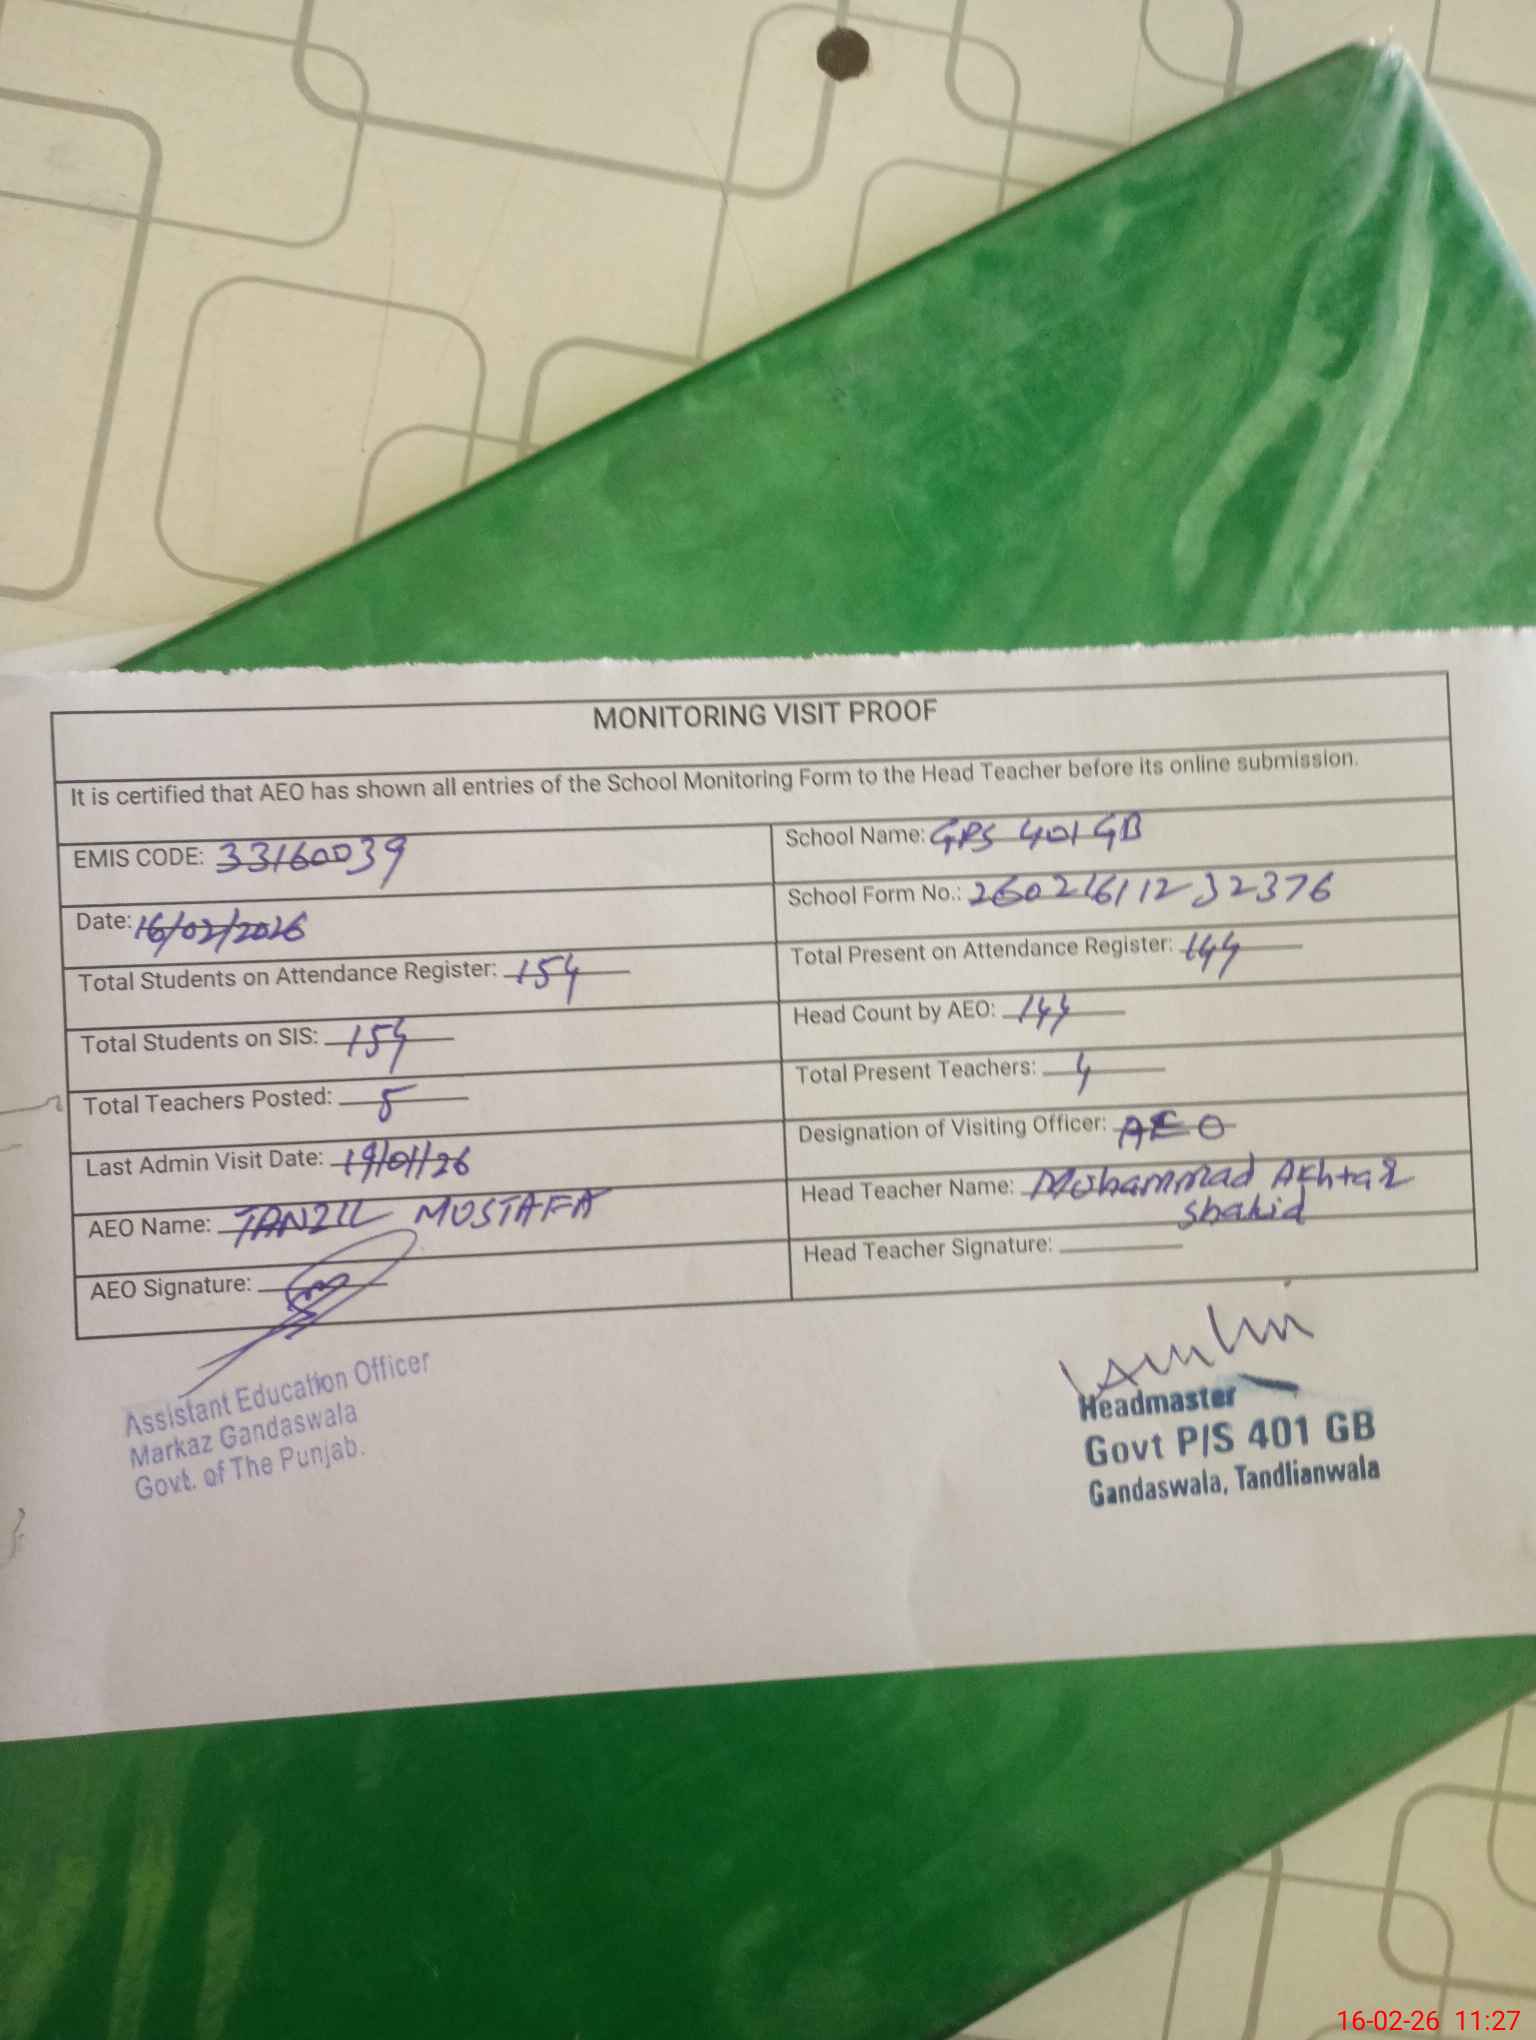 MONITORING VISIT PROOF
It is certified that AEO has shown all entries of the School Monitoring Form to the Head Teacher before its online submission.
EMIS CODE: 33160039
School Name: GPS 401 GB
Date: 16/02/2026
School Form No.: 26021611232376
Total Students on Attendance Register: 154
Total Present on Attendance Register: 144
Total Students on SIS: 154
Head Count by AEO: 144
Total Teachers Posted: 5
Total Present Teachers: 4
Last Admin Visit Date: 19/01/26
Designation of Visiting Officer: AEO
AEO Name: TANZIL MUSTAFA
Head Teacher Name: Mohammad Akhtar
Shahid
AEO Signature:
Head Teacher Signature:
Assistant Education Officer
Markaz Gandaswala
Govt. of The Punjab.
Headmaster
Govt P/S 401 GB
Gandaswala, Tandlianwala
16-02-26 11:27